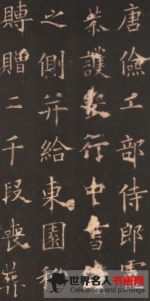 唐儉工部侍郎盧
恭護喪行中書
之側并給東園秘
賻贈二千段喪葬
世界名人书画网